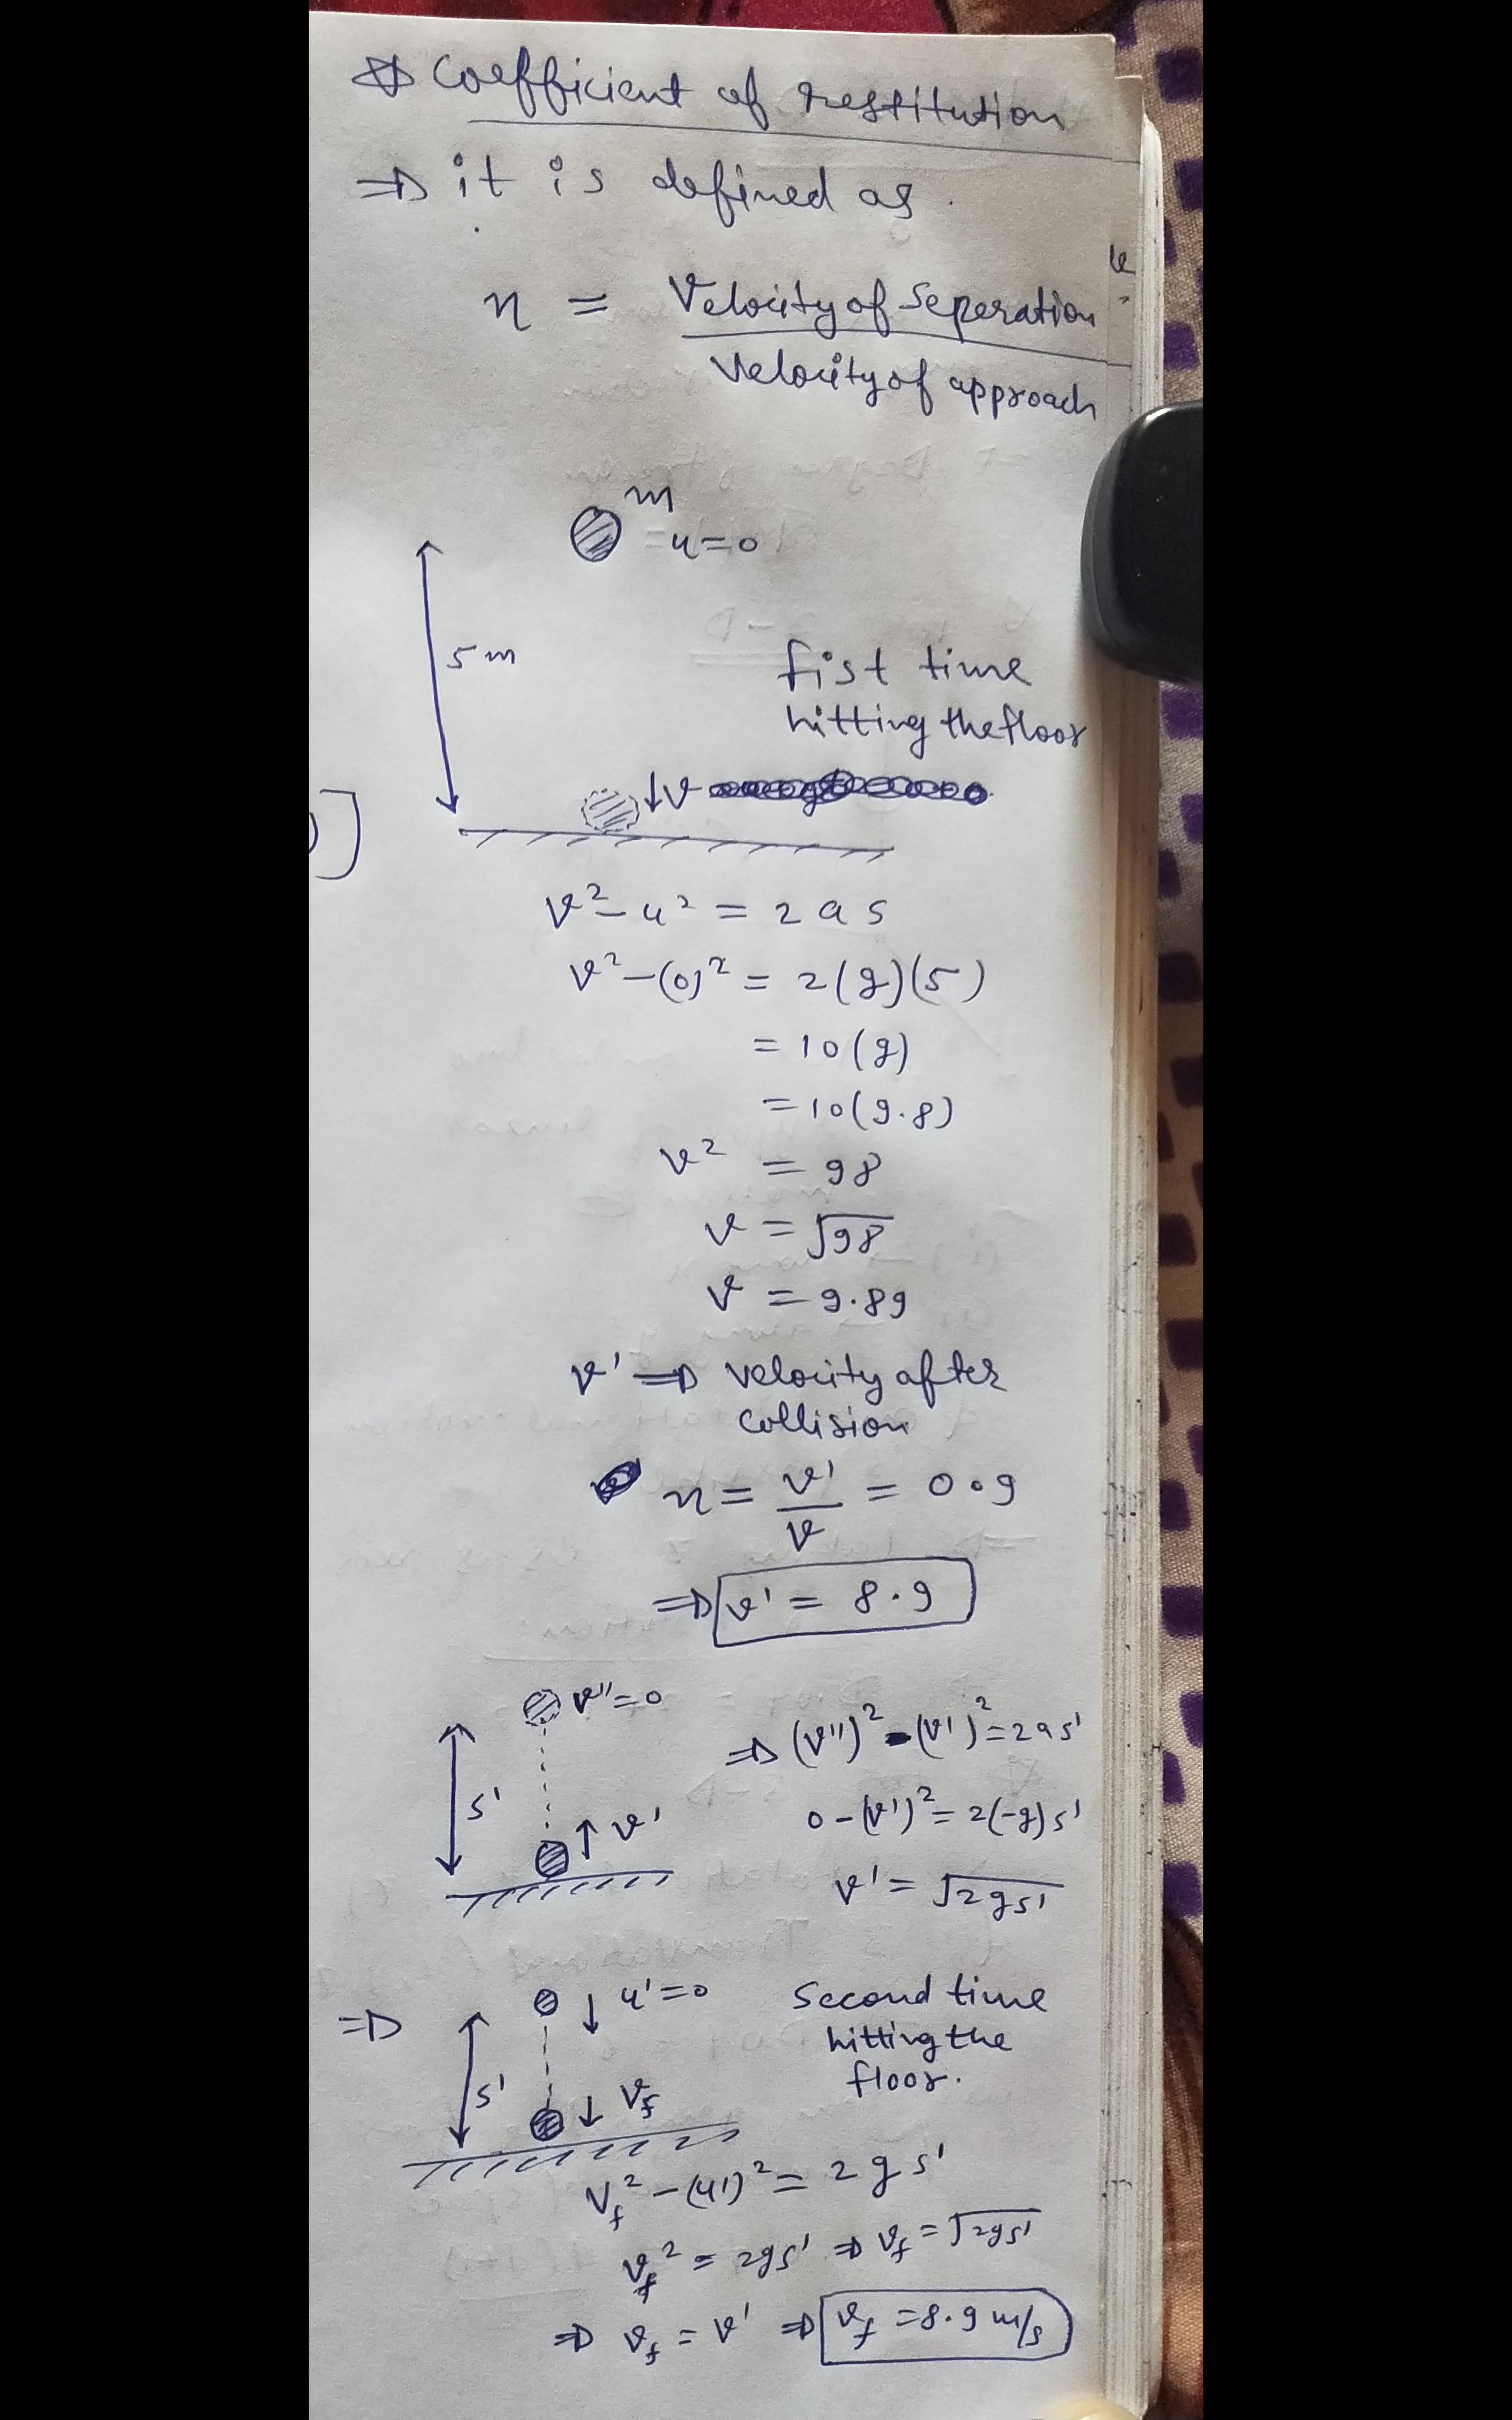 Coefficient of restitution
⇒ it is defined as
n = Velocity of Seperation
Velocity of approach
m
u=0
5 m
fist time
hitting the floor
↓v
v² - u² = 2 a s
v² - (0)² = 2(g)(5)
= 10(g)
= 10(9.8)
v² = 98
v = √98
v = 9.89
v' ⇒ velocity after
collision
n = v'/v = 0.9
⇒ v' = 8.9
v''=0
⇒ (v'')² - (v')² = 2as'
s'
↑ v'
0 - (v')² = 2(-g)s'
v' = √2gs'
⇒
↓ u'=0
Second time
hitting the
floor.
s'
↓ vf
Vf² - (u')² = 2 g s'
vf² = 2gs' ⇒ vf = √2gs'
⇒ vf = v' ⇒ vf = 8.9 m/s